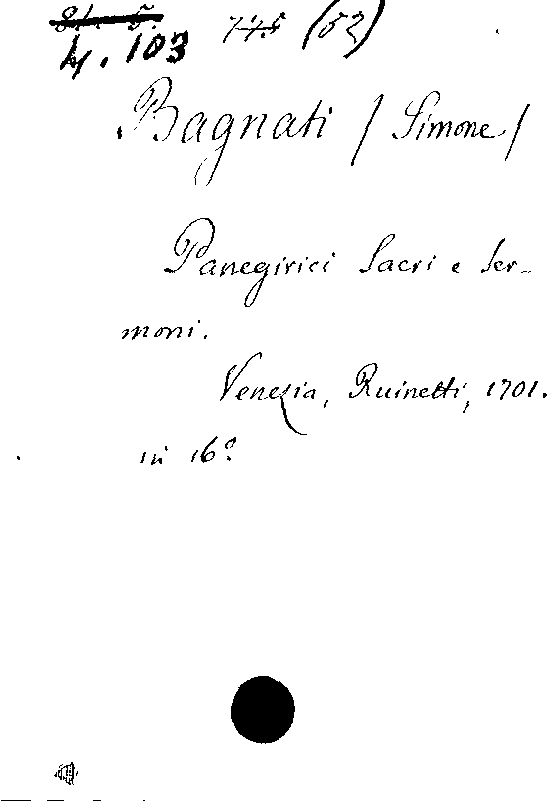 4.103 745 (52)
Bagnati / Simone /
Panegirici Sacri e Ser-
moni.
Venezia, Ruinetti, 1701.
in 16º